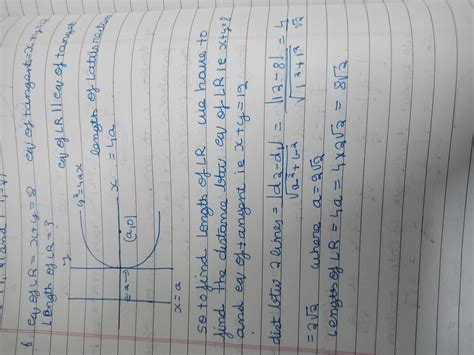 6 eq of LR = x+y=8 eq of tangent = x+y=12
length of LR = ?
eq of LR || eq of tangent
y
y²=4ax
length of Latus rectum
x = 4a
(a,0)
←a→
x=a
so to find length of LR we have to
find the distance btw eq of LR ie x+y=8
and eq of tangent ie x+y=12
dist btw 2 lines = |d2-d1| / √a²+b² = |12-8| / √1²+1² = 4 / √2
= 2√2 where a = 2√2
length of LR = 4a = 4×2√2 = 8√2